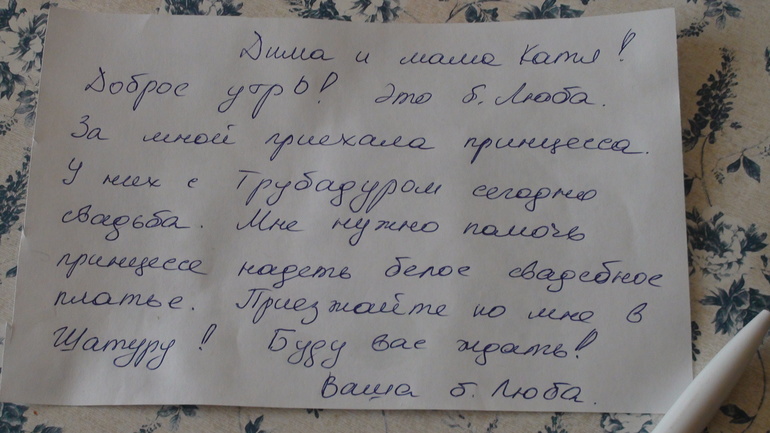 Дима и мама Катя!
Доброе утро! Это б. Люба.
За мной приехала принцесса.
У них с Трубадуром сегодня
свадьба. Мне нужно помочь
принцессе надеть белое свадебное
платье. Приезжайте ко мне в
Шатуру! Буду вас ждать!
Ваша б. Люба.